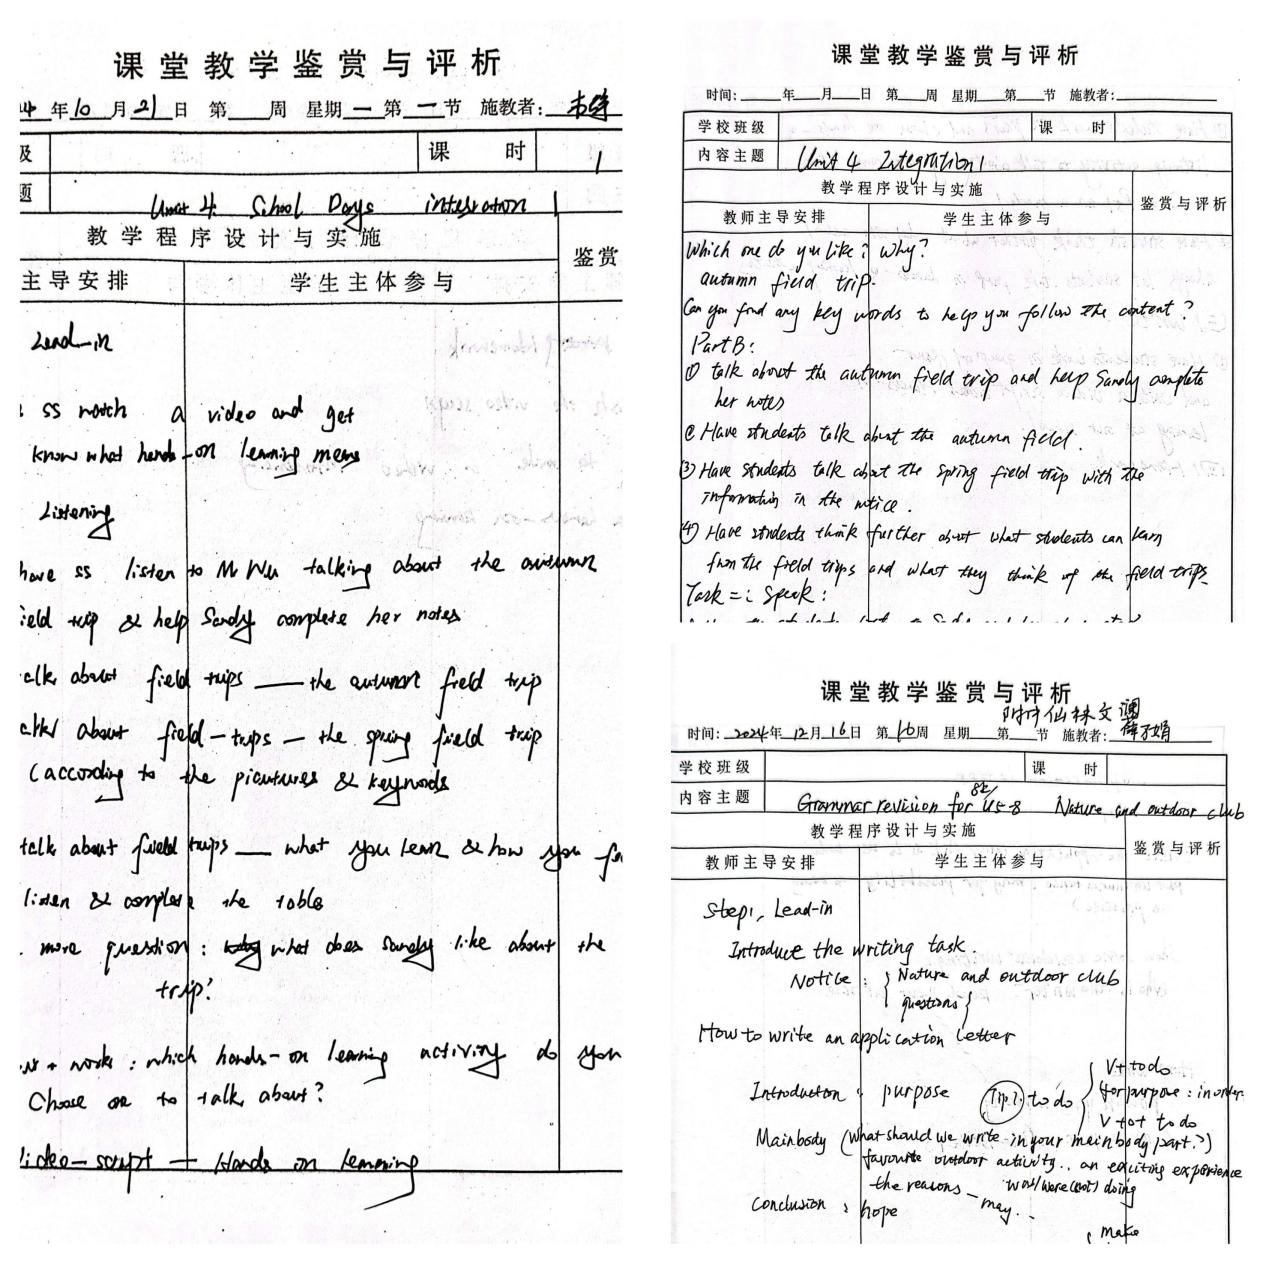 课堂教学鉴赏与评析
年10月21日 第 周 星期一 第一节 施教者:
课 时 1
Unit 4 School Days integration 1
教学程序设计与实施
鉴赏
主导安排 学生主体参与
Lead-in
ss watch a video and get
know what hands-on learning means
Listening
have ss listen to Mr Wu talking about the autumn
field trip & help Sandy complete her notes
talk about field trips — the autumn field trip
about field-trips — the spring field trip
(according to the picutures & keywords
talk about field trips — what you learn & how you
listen & complete the table
more question: what does Sandy like about the
trip?
works: which hands-on learning activity do you
Choose one to talk about?
video-script — Hands on learning
课堂教学鉴赏与评析
时间: 年 月 日 第 周 星期 第 节 施教者:
学校班级 课 时
内容主题 Unit 4 Integration 1
教学程序设计与实施
鉴赏与评析
教师主导安排 学生主体参与
Which one do you like? Why?
autumn field trip.
Can you find any key words to help you follow the content?
Part B:
① talk about the autumn field trip and help Sandy complete
her notes
② Have students talk about the autumn field.
③ Have students talk about the spring field trip with the
information in the notice.
④ Have students think further about what students can learn
from the field trips and what they think of the field trips
Task 二: Speak:
课堂教学鉴赏与评析
附中仙林文澜
时间: 2024年12月16日 第16周 星期 第 节 施教者:
学校班级 课 时
内容主题 Grammar revision for 8A U5-8 Nature and outdoor club
教学程序设计与实施
鉴赏与评析
教师主导安排 学生主体参与
Step1, Lead-in
Introduce the writing task.
Notice: { Nature and outdoor club
questions }
How to write an application letter
Introduction: purpose Tip1: to do { V+to do
for purpose: in order
V+o+ to do
Mainbody (what should we write in your mainbody part?)
favourite outdoor activity.. an exciting experience
the reasons — may.. was/were (not) doing
Conclusion: hope
make